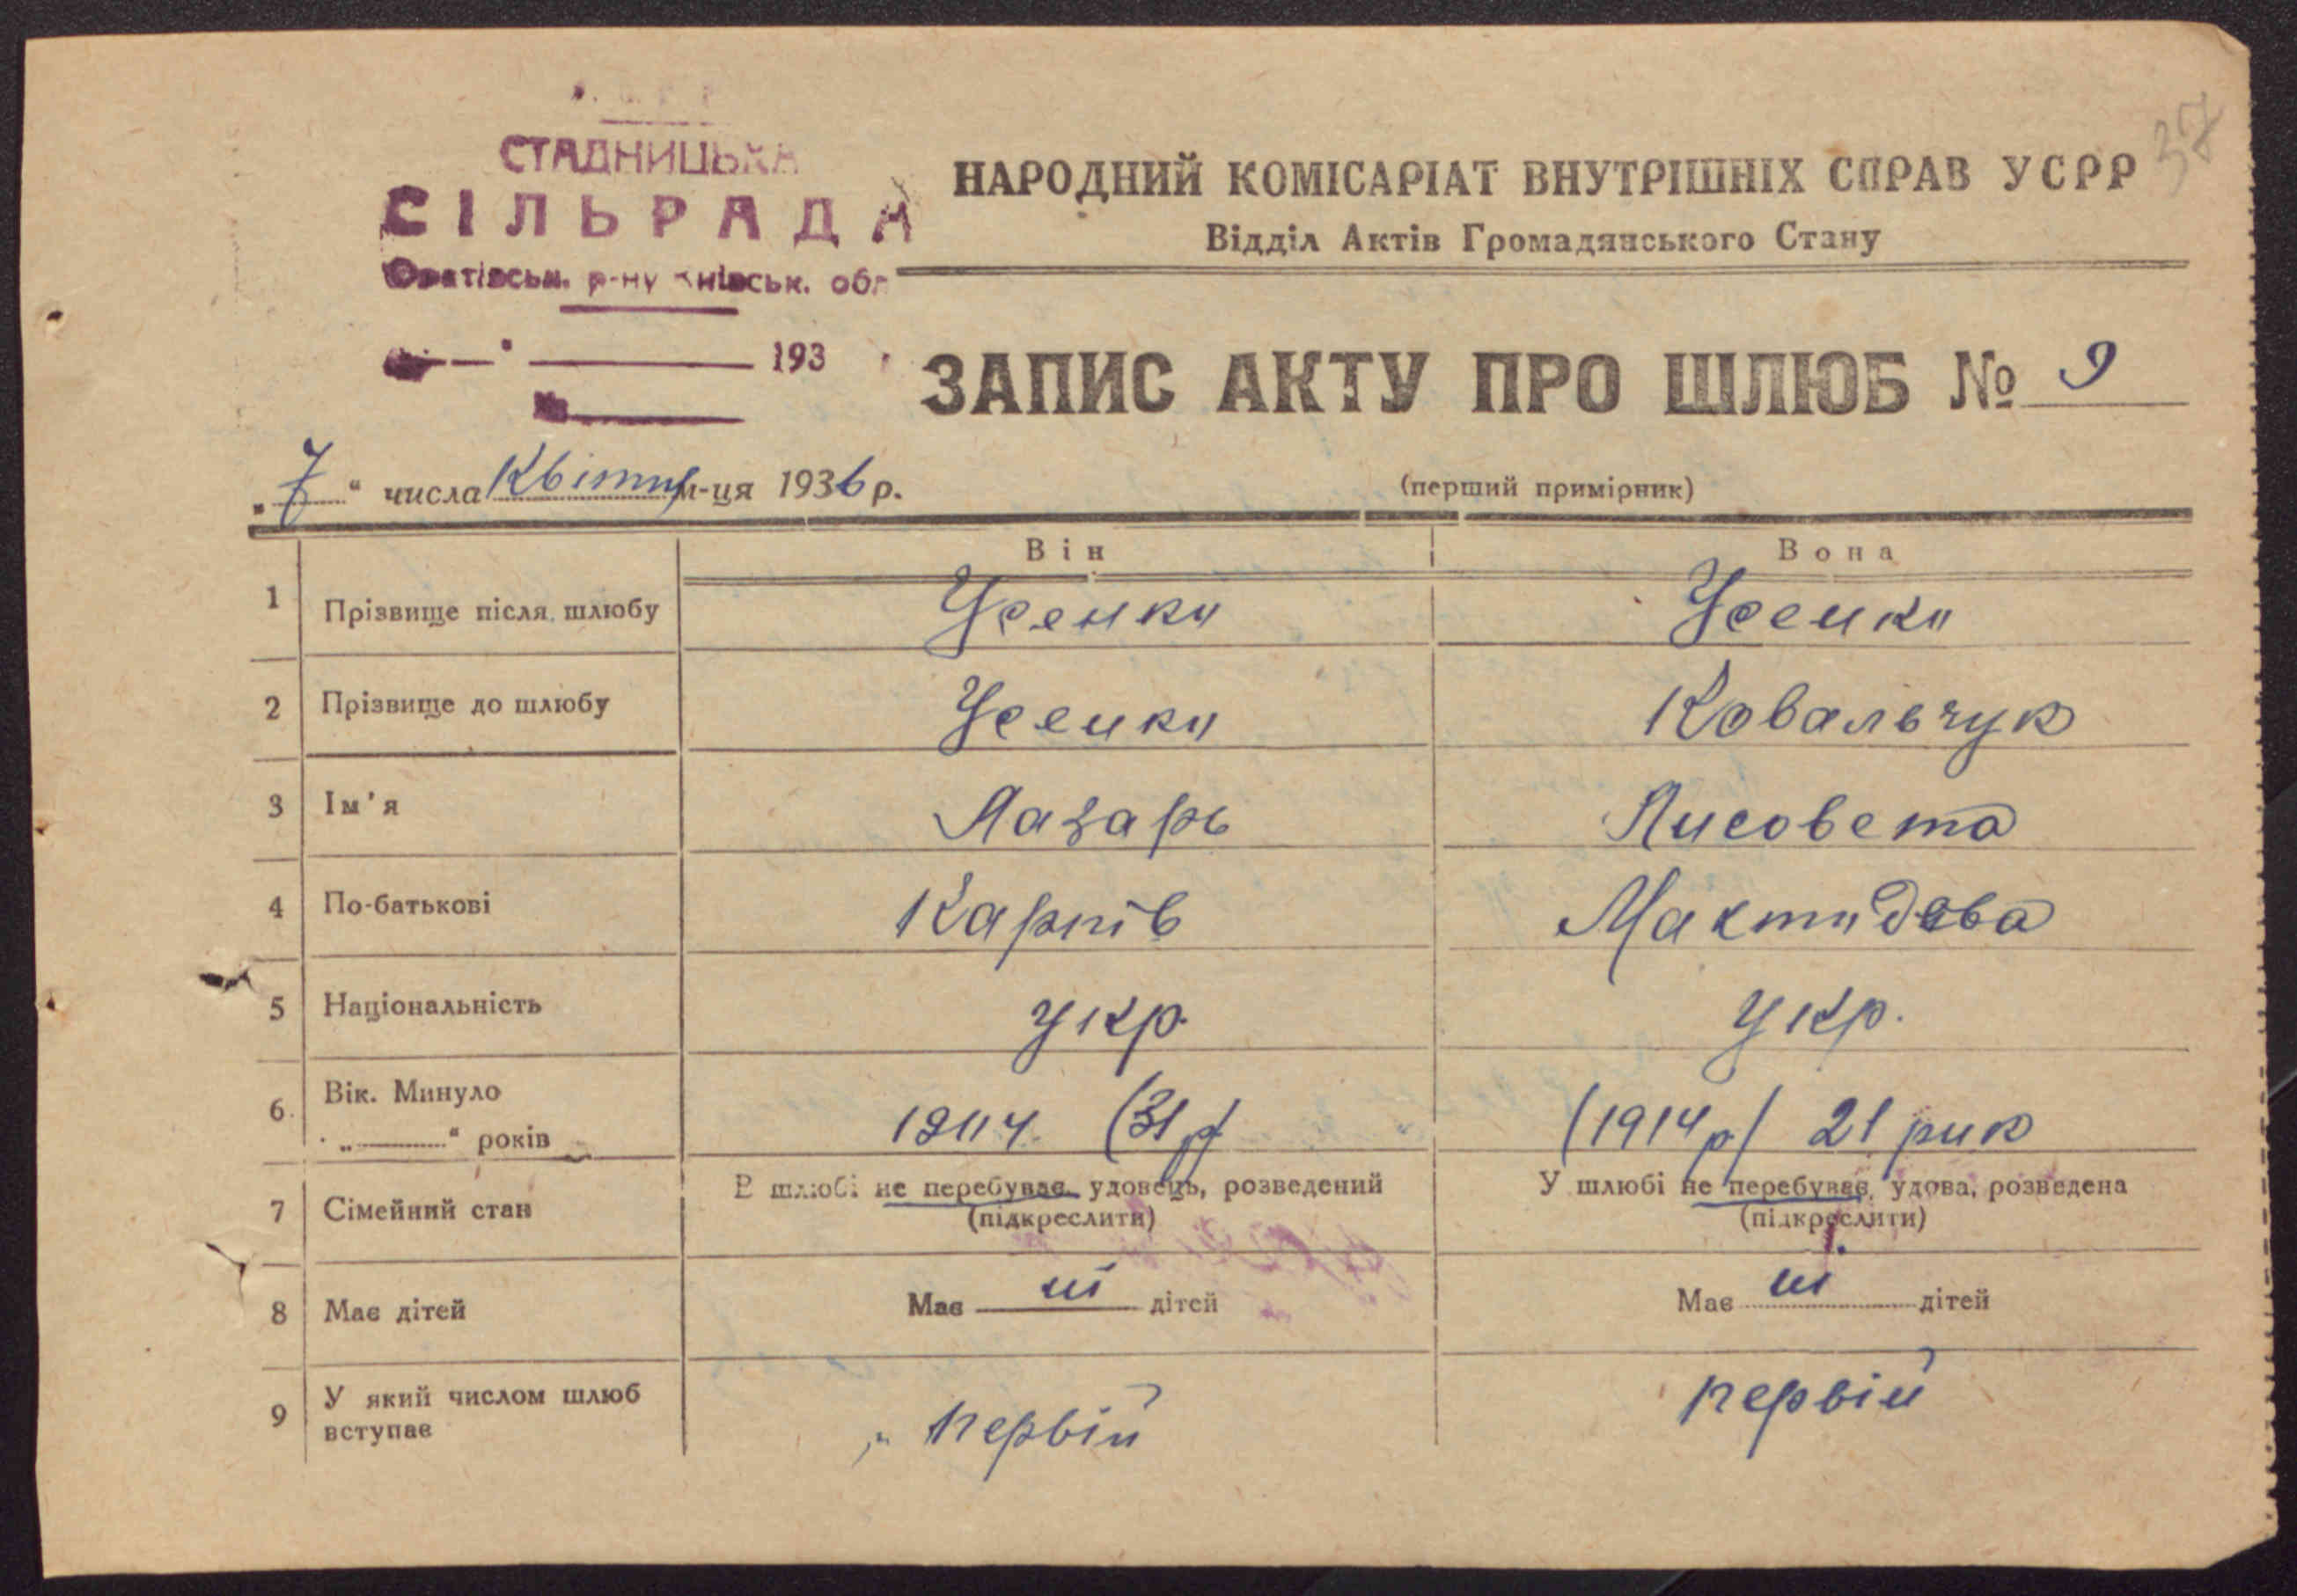 37
СТАДНИЦЬКА
СІЛЬРАДА
Оратівськ. р-ну Київськ. обл
193
№
НАРОДНИЙ КОМІСАРІАТ ВНУТРІШНІХ СПРАВ УСРР
Відділ Актів Громадянського Стану
ЗАПИС АКТУ ПРО ШЛЮБ № 9
„7“ числа Квітня м-ця 1936 р.
(перший примірник)
Він Вона
1 Прізвище після шлюбу Усенко Усенко
2 Прізвище до шлюбу Усенко Ковальчук
3 Ім'я Лазарь Лисовета
4 По-батькові Карпів
5 Національність укр. укр.
6. Вік. Минуло
„ “ років (31 р) (1914 р) 21 рик
7 Сімейний стан В шлюбі не перебуває, удовець, розведений У шлюбі не перебуває, удова, розведена
(підкреслити) (підкреслити)
8 Має дітей Має ні дітей Має ні дітей
9 У який числом шлюб
вступає первій первій